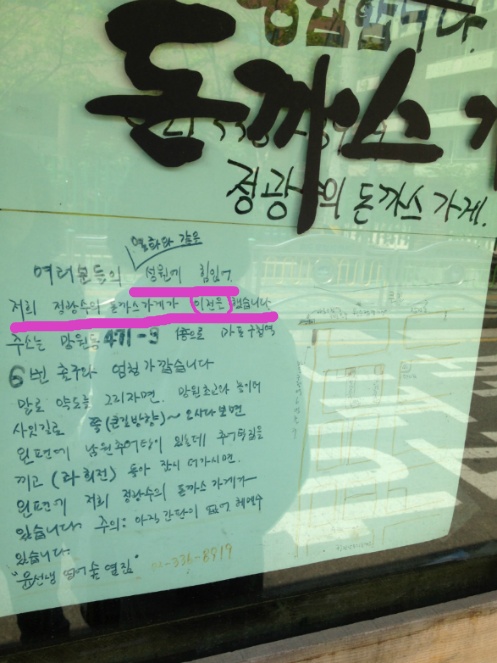 영업합니다.
돈까스 가
정광수의 돈까스 가게.
열화와 같은
여러분들의 성원에 힘입어
저희 정광수의 돈까스가게가 이전을 했습니다
주소는 망원동 471-3 1층으로 마포구청역
6번 출구와 엄청가깝습니다
말로 약도를 그리자면. 망원초교와 놀이터
사잇길로 쭉 (큰길방향)~ 오시다보면
왼편에 남원추어탕이 있는데 추어탕집을
끼고 (좌회전) 돌아 잠시 더가시면.
왼편에 저희 정광수의 돈까스 가게가
있습니다. 주의: 아직 간판이 없어 헤메수
있습니다
02-336-8919